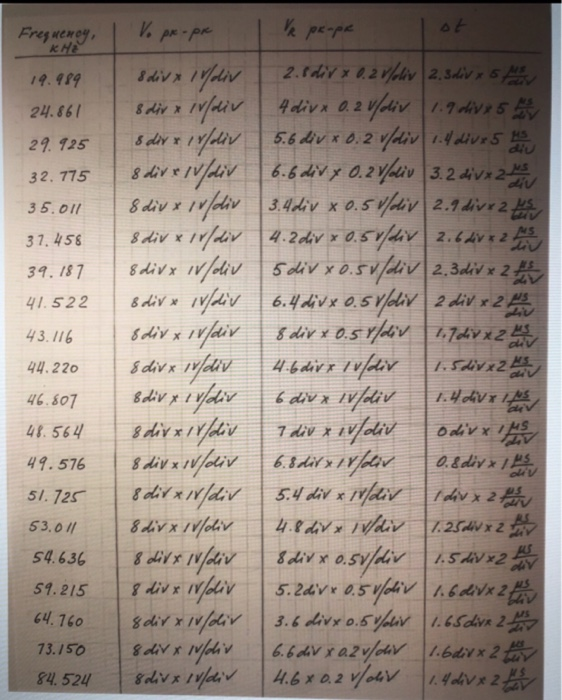 Frequency, kHz V₀ pk-pk V_R pk-pk Δt
19.989 8div x 1V/div 2.8div x 0.2V/div 2.3div x 5 μs/div
24.861 8div x 1V/div 4div x 0.2V/div 1.9div x 5 μs/div
29.925 8div x 1V/div 5.6div x 0.2V/div 1.4div x 5 μs/div
32.775 8div x 1V/div 6.6div x 0.2V/div 3.2div x 2 μs/div
35.011 8div x 1V/div 3.4div x 0.5V/div 2.9div x 2 μs/div
37.458 8div x 1V/div 4.2div x 0.5V/div 2.6div x 2 μs/div
39.187 8div x 1V/div 5div x 0.5V/div 2.3div x 2 μs/div
41.522 8div x 1V/div 6.4div x 0.5V/div 2div x 2 μs/div
43.116 8div x 1V/div 8div x 0.5V/div 1.7div x 2 μs/div
44.220 8div x 1V/div 4.6div x 1V/div 1.5div x 2 μs/div
46.807 8div x 1V/div 6div x 1V/div 1.4div x 1 μs/div
48.564 8div x 1V/div 7div x 1V/div 0div x 1 μs/div
49.576 8div x 1V/div 6.8div x 1V/div 0.8div x 1 μs/div
51.725 8div x 1V/div 5.4div x 1V/div 1div x 2 μs/div
53.011 8div x 1V/div 4.8div x 1V/div 1.25div x 2 μs/div
54.636 8div x 1V/div 8div x 0.5V/div 1.5div x 2 μs/div
59.215 8div x 1V/div 5.2div x 0.5V/div 1.6div x 2 μs/div
64.760 8div x 1V/div 3.6div x 0.5V/div 1.65div x 2 μs/div
73.150 8div x 1V/div 6.6div x 0.2V/div 1.6div x 2 μs/div
84.524 8div x 1V/div 4.6 x 0.2V/div 1.4div x 2 μs/div